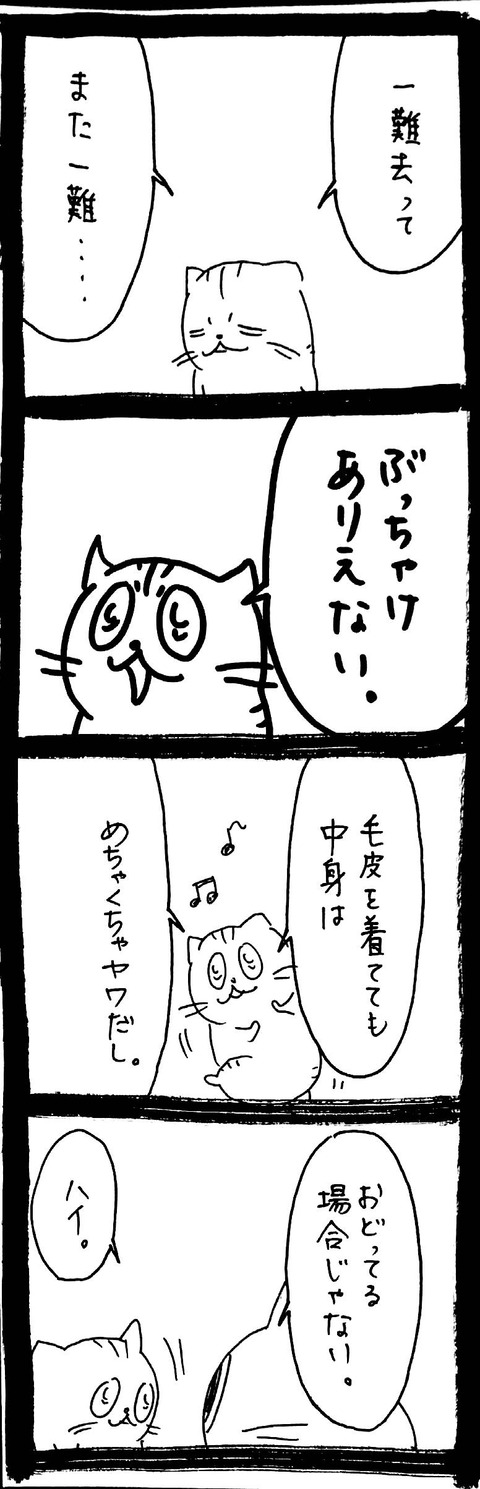 一難去って
また一難・・・・
ぶっちゃけ
ありえない。
毛皮を着てても
中身は
めちゃくちゃヤワだし。
おどってる
場合じゃない。
ハイ。